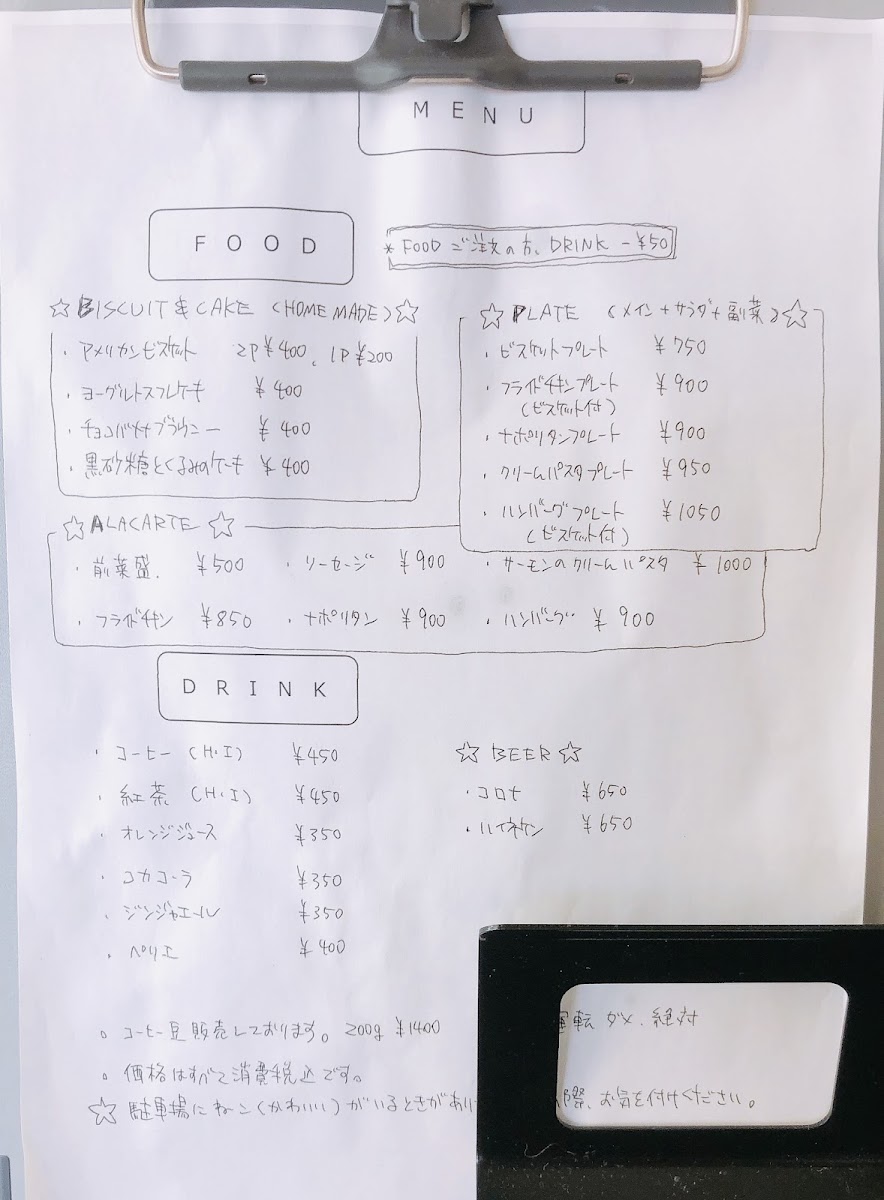 MENU
FOOD
* FOOD ご注文の方、DRINK -¥50
☆ BISCUIT & CAKE (HOME MADE) ☆
・アメリカンビスケット 2P ¥400、1P ¥200
・ヨーグルトスフレケーキ ¥400
・チョコバナナブラウニー ¥400
・黒砂糖とくるみのケーキ ¥400
☆ PLATE (メイン+サラダ+副菜) ☆
・ビスケットプレート ¥750
・フライドチキンプレート ¥900
(ビスケット付)
・ナポリタンプレート ¥900
・クリームパスタプレート ¥950
・ハンバーグプレート ¥1050
(ビスケット付)
☆ ALACARTE ☆
・前菜盛. ¥500 ・ソーセージ ¥900 ・サーモンのクリームパスタ ¥1000
・フライドチキン ¥850 ・ナポリタン ¥900 ・ハンバーグ ¥900
DRINK
・コーヒー (H・I) ¥450
・紅茶 (H・I) ¥450
・オレンジジュース ¥350
・コカコーラ ¥350
・ジンジャエール ¥350
・ペリエ ¥400
☆ BEER ☆
・コロナ ¥650
・ハイネケン ¥650
。コーヒー豆販売しております。200g ¥1400
運転ダメ、絶対
。価格はすべて消費税込です。
☆ 駐車場にネコ(かわいい)がいるときがあり 際、お気を付けください。